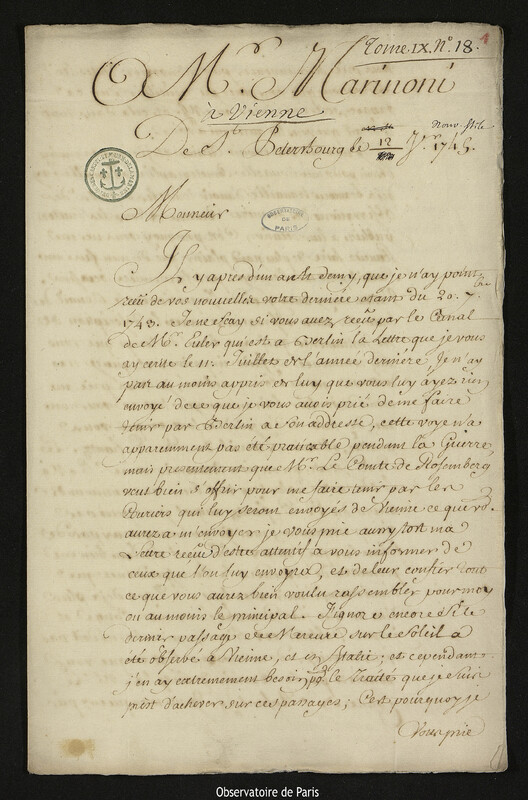 Tome IX. N.º 18.
M.r Marinoni
à Vienne
Nouv. stile
De S.t Petersbourg le 12 J.r 1745.
OBSERVATOIRE
DE
PARIS
Monsieur
Il y a pres d'un an et demy, que je n'ay point
reçu de vos nouvelles votre derniere étant du 20. 7.bre
1743. Je ne sçay si vous avez reçu par le Canal
de M.r Euler qui est a Berlin la Lettre que je vous
ay ecrite le 11.e Juillet de l'année derniere. Je n'ay
pas au moins appris de luy que vous luy ayez rien
envoyé de ce que je vous avois prié de me faire
tenir par Berlin a son addresse, cette voye n'a
apparemment pas été praticable pendant la Guerre,
mais presentement que M.r Le Comte de Rosemberg
veut bien s'offrir pour me faire tenir par les
Couriers qui luy seront envoyés de Vienne ce que vo.
aurez a m'envoyer je vous prie aussytost ma
Lettre reçuë d'estre attentif a vous informer de
ceux que l'on luy envoyra, et de leur confier tout
ce que vous aurez bien voulu rassembler pour moy
ou au moins le principal. J'ignore encore si le
dernier passage de Mercure sur le Soleil a
été observé a Vienne, et en Italie; et cependant
j'en ay extremement besoin p.r le Traité que je suis
prest d'achever sur ces passages; C'est pourquoy je
Vous prie
Observatoire de Paris